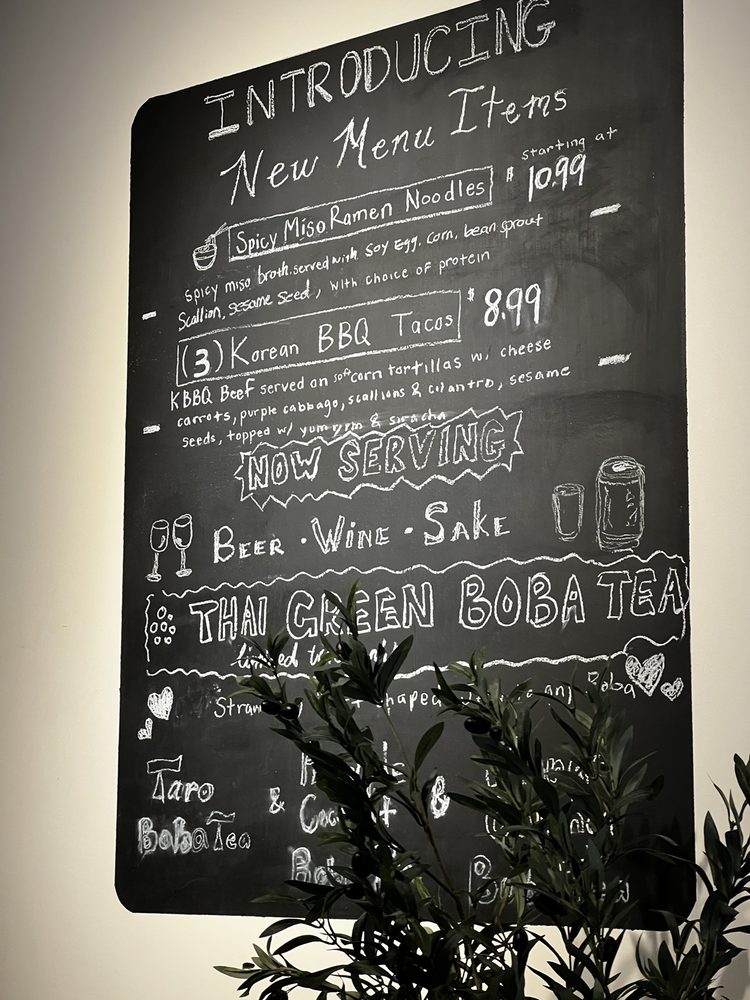 INTRODUCING
New Menu Items
starting at
Spicy Miso Ramen Noodles $10.99
spicy miso broth. served with soy egg, corn, bean sprout
scallion, sesame seed, with choice of protein
(3) Korean BBQ Tacos $8.99
KBBQ Beef served on soft corn tortillas w/ cheese
carrots, purple cabbage, scallions & cilantro, sesame
seeds, topped w/ yum yum & siracha
NOW SERVING
BEER · WINE · SAKE
THAI GREEN BOBA TEA
limited
Boba
Taro & &
Boba Tea